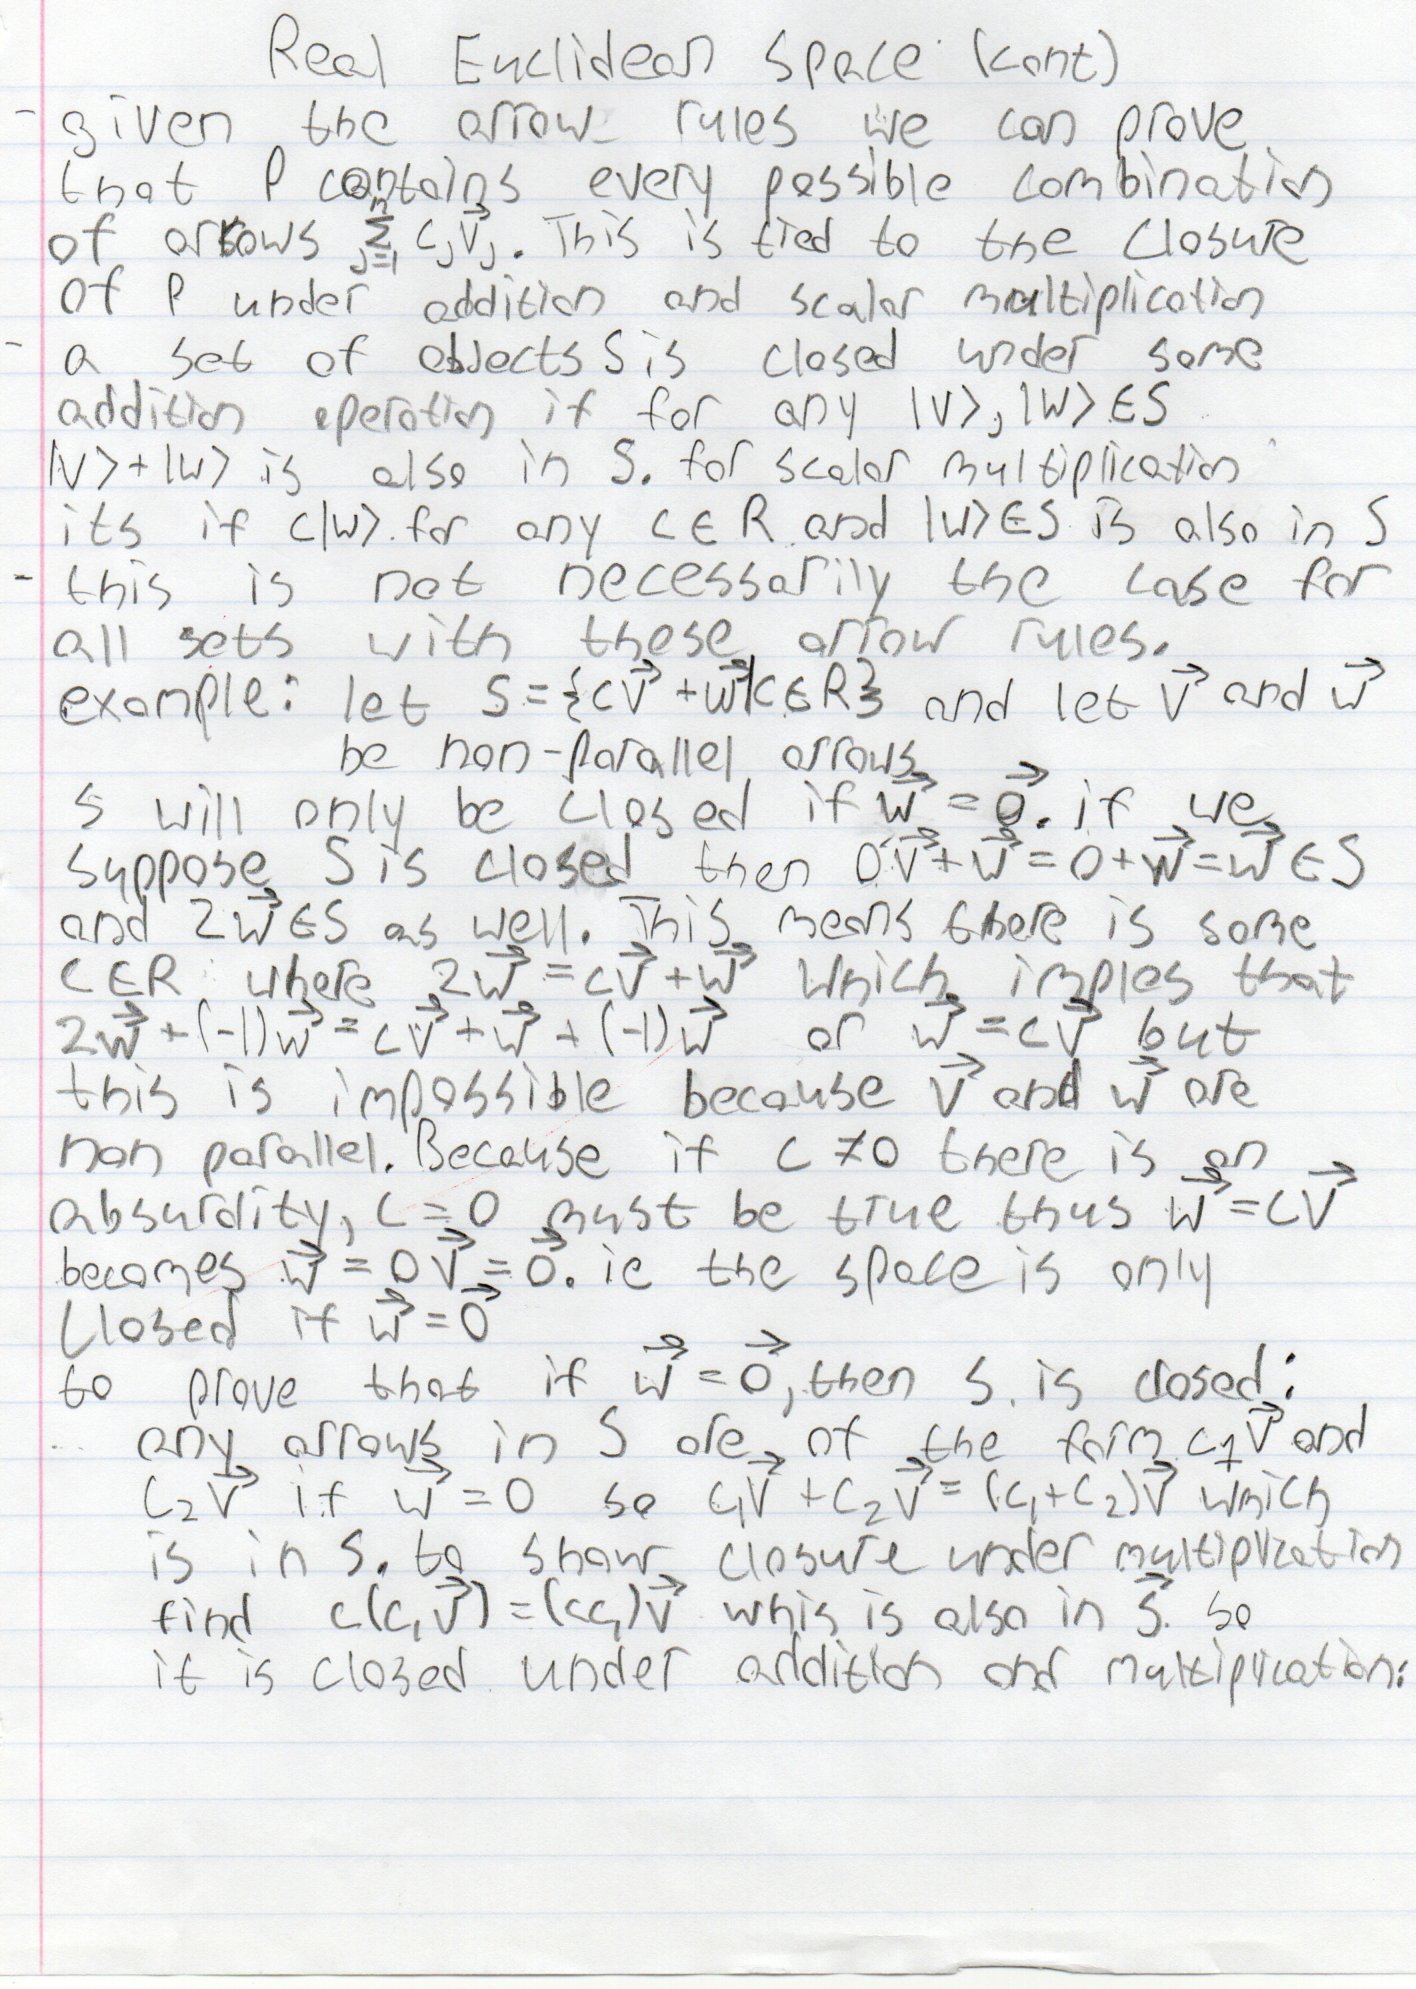 Real Euclidean Space (cont)
- given the arrow rules we can prove
that P contains every possible combination
of arrows \sum_{j=1}^{n} c_j\vec{v}_j. This is tied to the closure
of P under addition and scalar multiplication
- a set of objects S is closed under some
addition operation if for any |V>, |W> ∈ S
|V> + |W> is also in S. for scalar multiplication
its if c|W> for any c ∈ R and |W> ∈ S is also in S
- this is not necessarily the case for
all sets with these arrow rules.
example: let S = {c\vec{v} + \vec{w} | c ∈ R} and let \vec{v} and \vec{w}
be non-parallel arrows
S will only be closed if \vec{w} = \vec{0}. if we
suppose S is closed then 0\vec{v} + \vec{w} = 0 + \vec{w} = \vec{w} ∈ S
and 2\vec{w} ∈ S as well. This means there is some
c ∈ R where 2\vec{w} = c\vec{v} + \vec{w} which imples that
2\vec{w} + (-1)\vec{w} = c\vec{v} + \vec{w} + (-1)\vec{w} or \vec{w} = c\vec{v} but
this is impossible because \vec{v} and \vec{w} are
non parallel. Because if c ≠ 0 there is an
absurdity, c = 0 must be true thus \vec{w} = c\vec{v}
becomes \vec{w} = 0\vec{v} = \vec{0}. ie the space is only
closed if \vec{w} = \vec{0}
to prove that if \vec{w} = \vec{0}, then S. is closed:
any arrows in S are of the form c_1\vec{v} and
c_2\vec{v} if \vec{w} = 0 so c_1\vec{v} + c_2\vec{v} = (c_1 + c_2)\vec{v} which
is in S. to show closure under multiplication
find c(c_1\vec{v}) = (cc_1)\vec{v} whis is also in \vec{S}. so
it is closed under addition and multiplication: